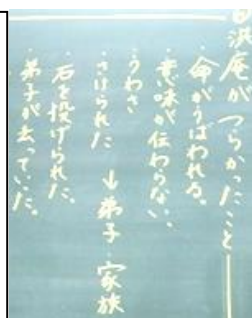 日浜庵がつらかったこと
・命がうばわれる。
・意味が伝わらない、
・うわさ
・さけられた → 弟子・家族
・石を投げられた。
・弟子が去っていった。